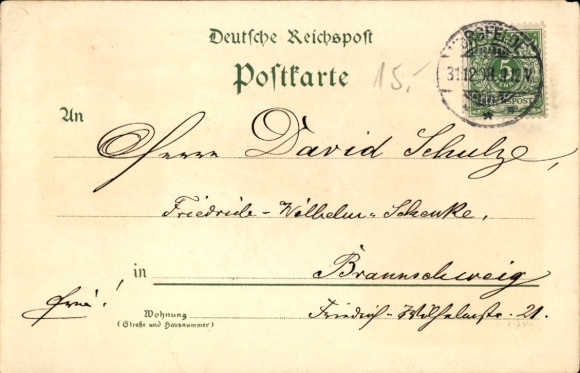 Deutsche Reichspost
Postkarte
15,-
31.12.
5
An
Herrn David Schulze,
Friedrich-Wilhelm-Schenke,
in Braunschweig
frei!
Wohnung Friedrich-Wilhelmstr. 21.
(Straße und Hausnummer)